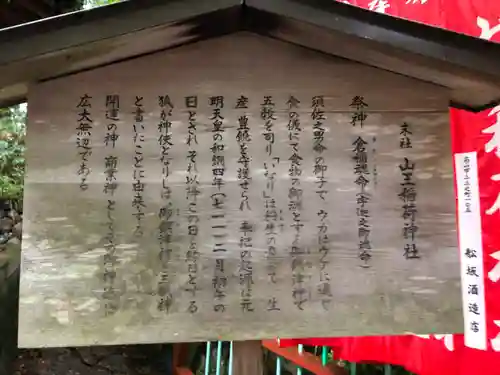 末社 山王稲荷神社
祭神 倉稲魂命(宇迦之御魂命)
須佐之男命の御子で ウカはウケに通で
食の儀にて食物の御魂とする御饌津神で
五穀を司り「いなり」は稲生の意にて 生
産 豊饒を守護せられ 奉祀の起源は元
明天皇の和銅四年(七一一)二月初午の
日とされ それ以降この日を祭日とする
狐が神使となりしは、御饌津神を三狐神
と書いたことに由来する。
開運の神 商業神としても御神徳は
広大無辺である
松坂酒造店